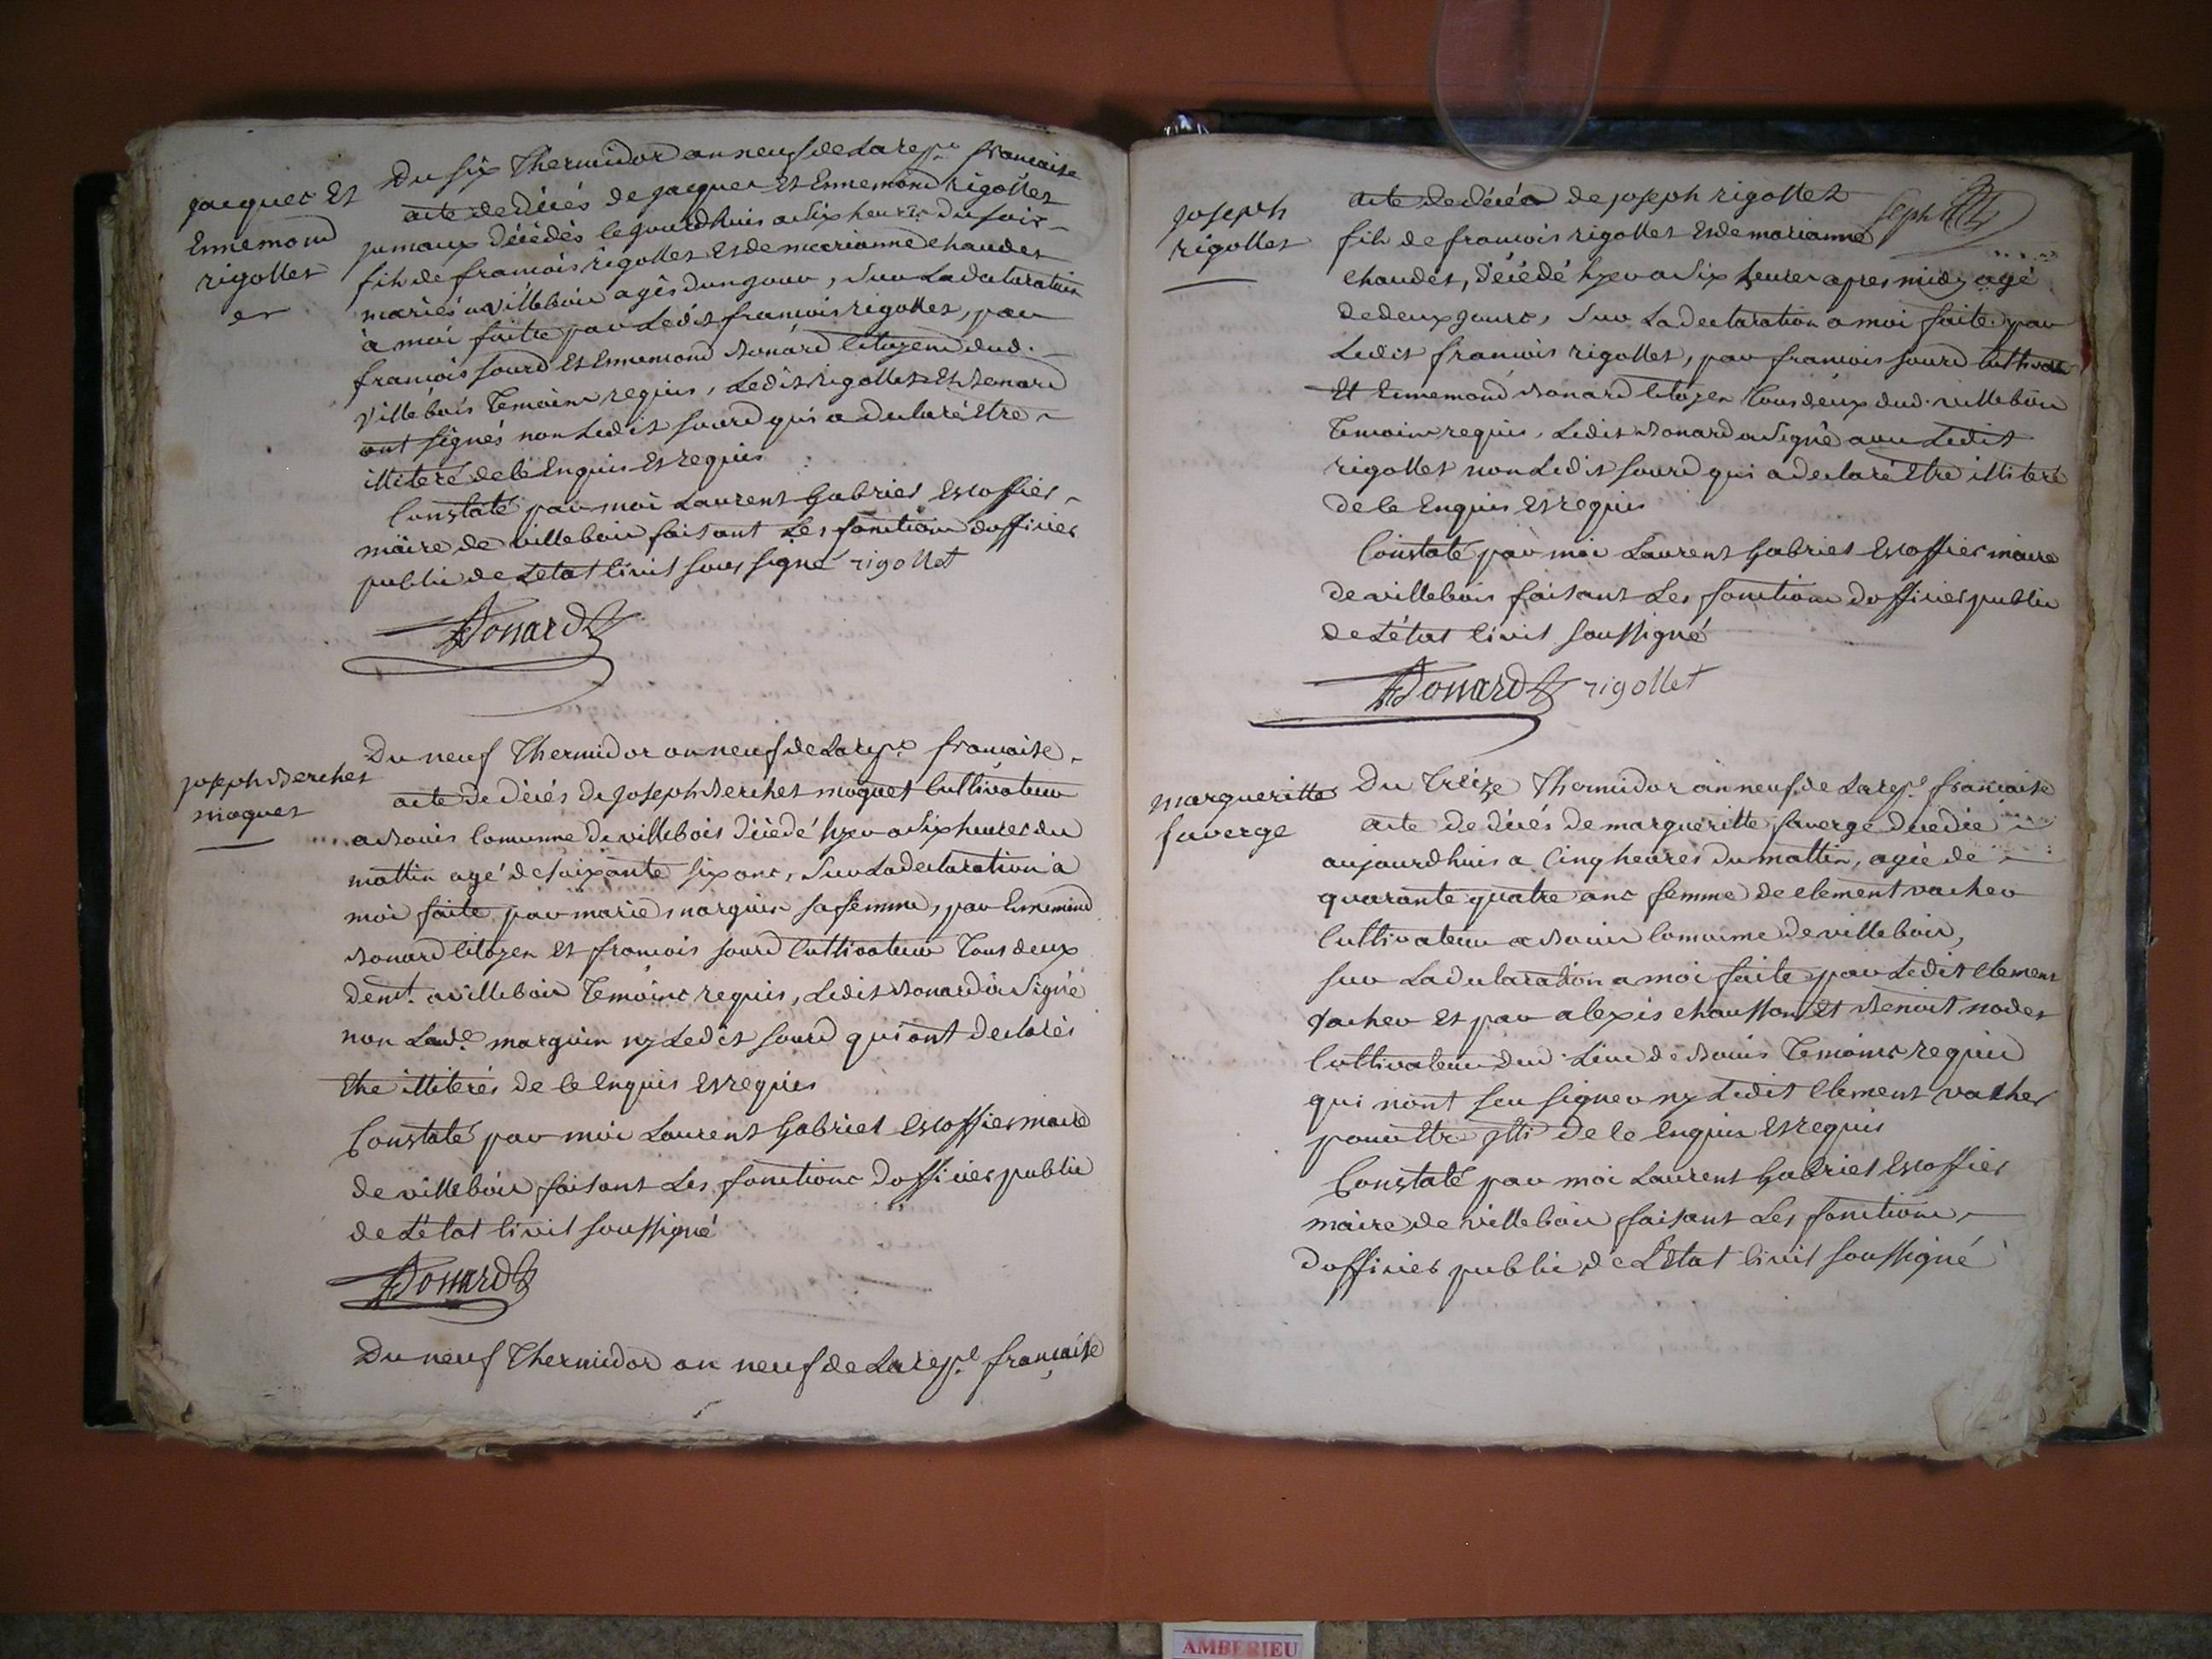 jacques Et
Ennemond
rigollet
Du six Thermidor an neuf de La rep.e francaise
acte de décés de jacques Et Ennemond rigollet
jumaux décédés le jourdhuis a six heures du soir
fils de francois rigollet Et de marianne chaudet
mariés a villebois agés dun jour, sur La declaration
à moi faitte par Ledit francois rigollet, par
francois sourd Et Ennemond Bonard Citoyens dud.
villebois Temoins requis, Ledit rigollet Et Bonard
ont signés non Ledit sourd qui a declaré Etre
illiteré de ce Enquis Et requis
Constaté par moi Laurent Gabriel Escoffier
maire de villebois faisant Les fonctions dofficier
public de Letat Civil sous signé rigollet
Bonard
joseph Berchet
moquet
Du neuf Thermidor an neuf de La rep.e francaise
acte de décés de joseph Berchet moquet Cultivateur
a Bouis Comunne de villebois décédé hyer a six heures du
mattin agé de soixante six ans, sur La declaration à
moi faite par marie marguin sa femme, par Ennemond
Bonard Citoyen Et francois sourd Cultivateur Tous deux
demt. a villebois Temoins requis, Ledit Bonard a signé
non Lad.e marguin ny Ledit sourd qui ont declarés
Etre illiterés de ce Enquis Et requis
Constaté par moi Laurent Gabriel Escoffier maire
de villebois faisant Les fonctions dofficier public
de Létat Civil soussigné
Bonard
Du neuf Thermidor an neuf de La rep.e française
joseph
rigollet
acte de décés de joseph rigollet
fils de francois rigollet Et de marianne
chaudet, décédé hyer a six heures apres midy agé
de deux jours, sur La declaration a moi faite par
Ledit francois rigollet, par francois sourd Cultivateur
Et Ennemond Bonard Citoyen Tous deux dud. villebois
Temoins requis, Ledit Bonard a signé avec Ledit
rigollet non Ledit sourd qui a declaré Etre illiteré
de ce Enquis Et requis
Constaté par moi Laurent Gabriel Escoffier maire
de villebois faisant Les fonctions dofficier public
de Létat Civil soussigné
Bonard rigollet
margueritte
faverge
Du Treize Thermidor an neuf de La rep.e française
acte de décés de margueritte faverge décédée
aujourdhuis a Cinq heures du mattin, agée de
quarante quatre ans femme de Clement vacher
Cultivateur a Bouis Comunne de villebois,
sur La declaration a moi faite par Ledit Clement
vacher Et par alexis chausson Et Benoit nodet
Cultivateurs dud. Lieu de Bouis Temoins requis
qui nont seu signer ny Ledit Clement vacher
pour Etre de ce Enquis Et requis
Constaté par moi Laurent Gabriel Escoffier
maire de villebois faisant Les fonctions
dofficier public de Létat Civil soussigné
AMBERIEU